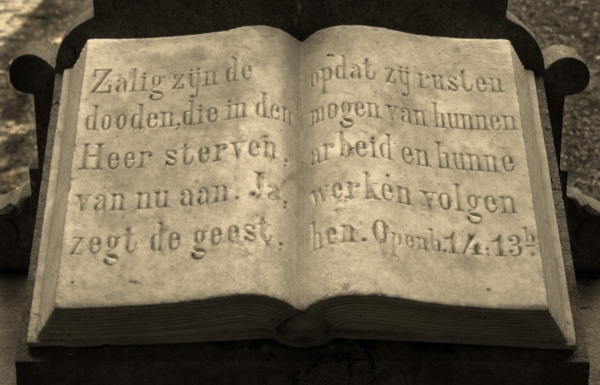 Zalig zijn de
dooden, die in den
Heer sterven,
van nu aan. Ja,
zegt de geest,
opdat zij rusten
mogen van hunnen
arbeid en hunne
werken volgen
hen. Openb. 14:13b